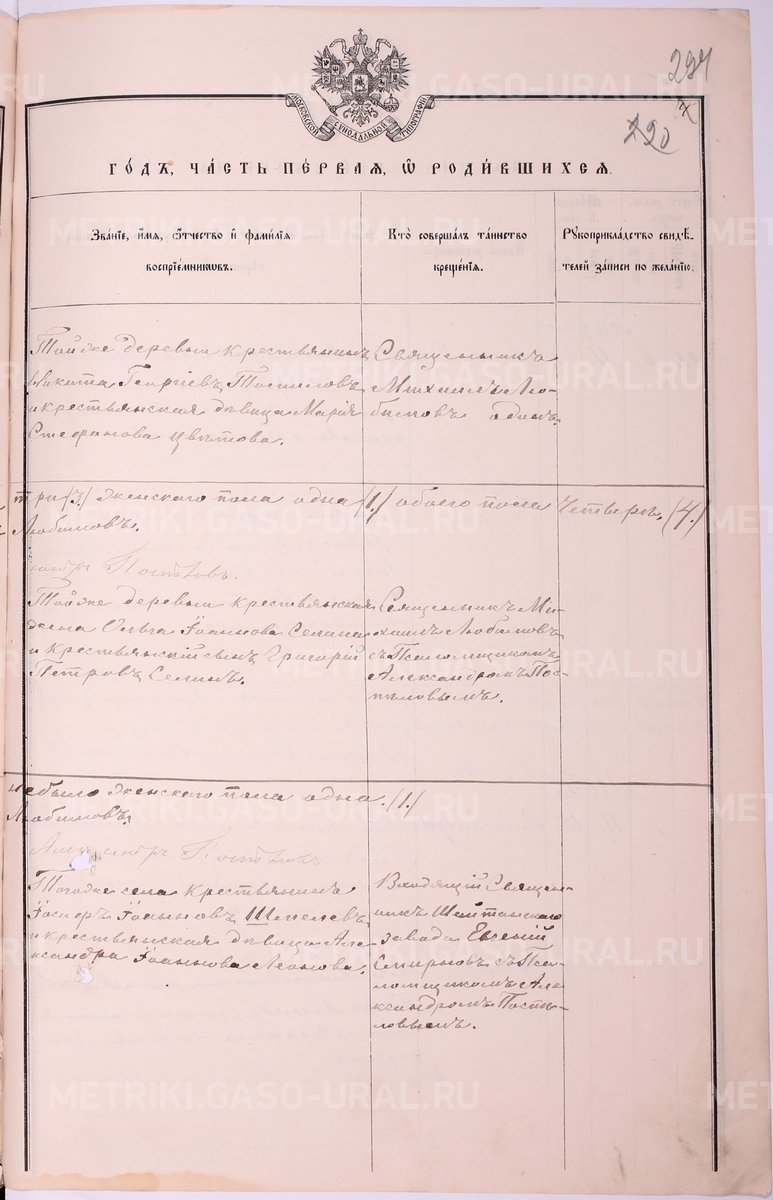 294
220
МОСКОВСКОЙ СѴНОДАЛЬНОЙ ТИПОГРАФІИ
ГОДЪ, ЧАСТЬ ПЕРВАЯ, Ѡ РОДИВШИХСЯ.
Званіе, имя, отчество и фамилія
воспріемниковъ.
Кто совершалъ таинство
крещенія.
Рукоприкладство свидѣ-
телей записи по желанію.
Той же деревни крестьянинъ
Никита Георгіевъ
и крестьянская дѣвица Марія
Стефанова Цвѣтова.
Священникъ
Михаилъ Лю-
бимовъ одинъ.
три (3.) женскаго пола одна (1.) обоего пола четверо. (4.)
Любимовъ.
Той же деревни крестьянская
жена Ольга Іоаннова Селина
и крестьянскій сынъ Григорій
Петровъ Селинъ.
Священникъ Ми-
хаилъ Любимовъ
съ Псаломщикомъ
Александромъ Пос-
пѣловымъ.
не было женскаго пола одна (1.)
Любимовъ.
Тогоже села крестьянинъ
Іосифъ Іоанновъ Шепелевъ
и крестьянская дѣвица Але-
ксандра Іоаннова Леонова.
Входящій Священ-
никъ Шайтанскаго
завода Евгеній
Смирновъ съ Пса-
ломщикомъ Але-
ксандромъ Поспѣ-
ловымъ.
METRIKI.GASO-URAL.RU